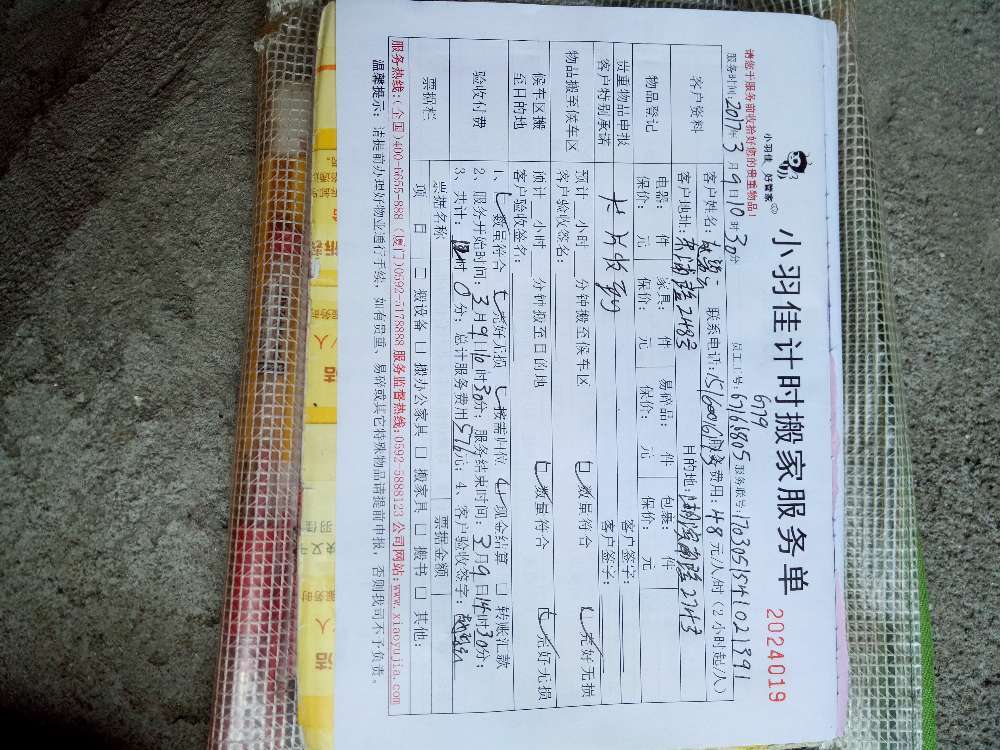 小羽佳 好管家
小羽佳计时搬家服务单
2024019
请您于服务前收拾好您的贵重物品!
服务时间:2017年3月9日10时30分 员工工号:67165805 服务联号:1703051541021391
6779
客户资料
客户姓名: 联系电话: 服务费用:48元/人/时(2小时起/人)
客户地址: 2483 目的地: 2743
物品登记
电器: 件 家具: 件 易碎品: 件 包装: 件
保价: 元 保价: 元 保价: 元 保价: 元
贵重物品申报 客户签字:
客户特别承诺 客户签字:
物品搬至候车区
预计 小时 分钟搬至候车区 数量符合 完好无损
客户验收签名:
候车区搬至目的地
预计 小时 分钟搬至目的地 数量符合 完好无损
客户验收签名:
验收付费
1、 数量符合 完好无损 按需归位 现金结算 □ 转账汇款
2、服务开始时间:3月9日10时30分;服务结束时间:3月9日14时30分;
3、共计: 时0分;总计服务费用576元;4、客户验收签字:
票据栏
票据名称 票据金额
项 目 □ 搬设备 □ 搬办公家具 □ 搬家具 □ 搬书 □ 其他:
服务热线:(全国)400-6655-888 (厦门)0592-5178888 服务监督热线:0592-5888123 公司网站:www.xiaoyujia.com
温馨提示: 请提前办理好物业通行手续,如有贵重、易碎或其它特殊物品请提前申报,否则我司不予负责。